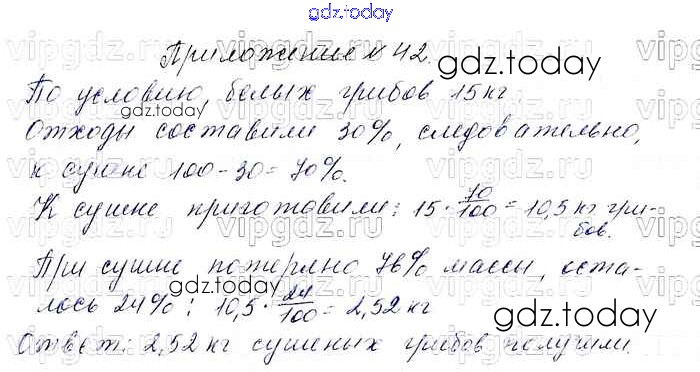 gdz.today
Приложение № 42.
gdz.today
По условию, белых грибов 15 кг.
Отходы составили 30%, следовательно,
к сушке 100 - 30 = 70%.
gdz.today
К сушке приготовили: 15 · 70/100 = 10,5 кг гри-
бов.
При сушке потеряно 76% массы, оста-
лось 24%: 10,5 · 24/100 = 2,52 кг
gdz.today
gdz.today
Ответ: 2,52 кг сушеных грибов получили.